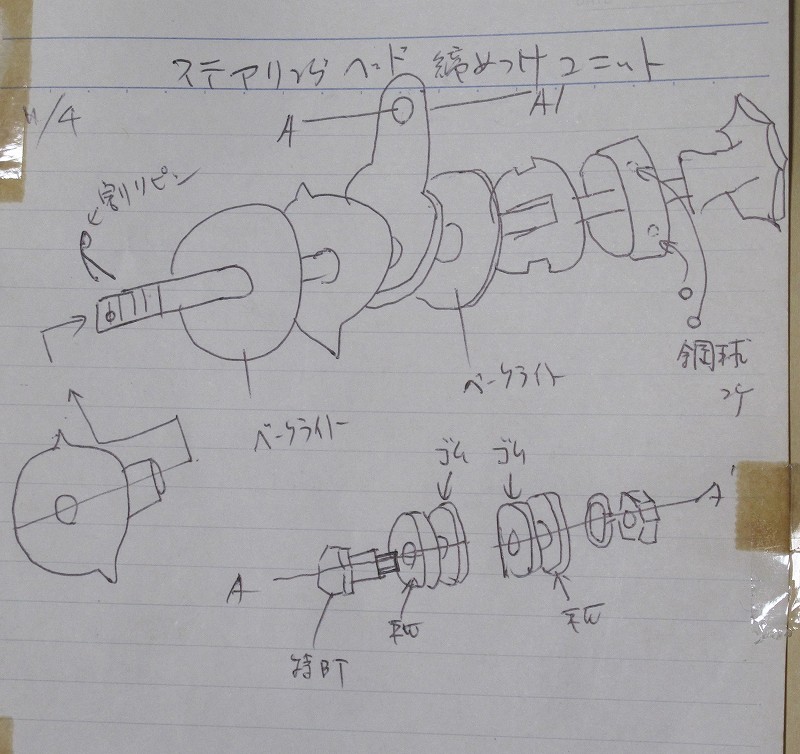 ステアリング ヘッド 締めつけユニット
1/4
A
A'
割りピン
ベークライト
ベークライト
鋼球
2ケ
ゴム
ゴム
A'
A
平W
平W
特BT